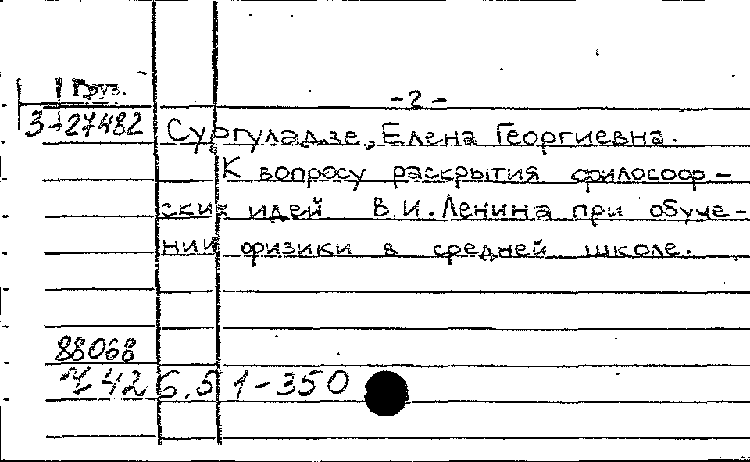 Груз.
-2-
3-27482
Сургуладзе, Елена Георгиевна.
К вопросу раскрытия философ-
ских идей В.И. Ленина при обуче-
нии физики в средней школе.
88068
Ч 426.51-350